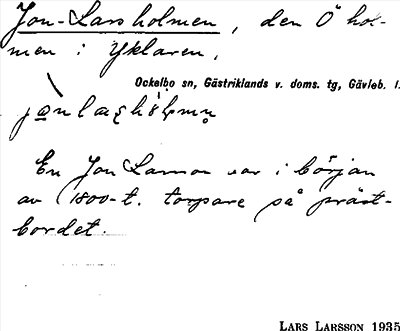 Jon-Lars holmen, den Ö hol-
men i Yklaren.
Ockelbo sn, Gästriklands v. doms. tg, Gävleb. l.
En Jon Larson var i början
av 1800-t. torpare på präst-
bordet.
LARS LARSSON 1935